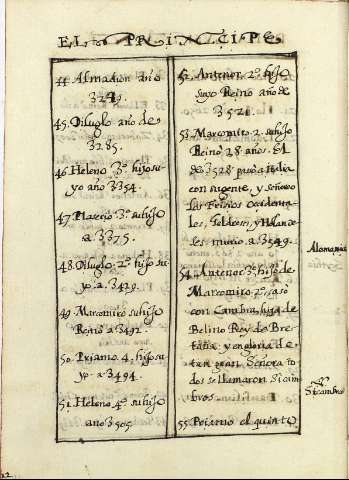 EL PRINCIPE
44. Asmadion año
3249.
45. Diluglo año de
3285.
46 Heleno 3º hijo su
yo año 3354.
47. Plaserio 3º su hijo
a. 3375.
48. Diluglo 2º hijo su
yo. a. 3419.
49. Marcomiro su hijo
Reino a 3492.
50. Priamo 4. hijo su
yo. a. 3494.
51. Heleno 4º su hijo
año 3505
52. Antenor 2º hijo
suyo Reino año de
3521.
53. Marcomiro 2. su hijo
Reino 28 años. El
de 3528 paso a Italia
con su gente, y señoreo
las Frisios Occidenta
les, Geldeses, y Holande
ses murio a. 3549.
54. Antenor 3º hijo de
Marcomiro 2º caso
con Cambra hija de
Belino Rey de Bre
taña y en gloria de
tan gran Señora to
dos se llamaron Sicam
bros.
55 Priamo el quinto
Alemania
Sicambros